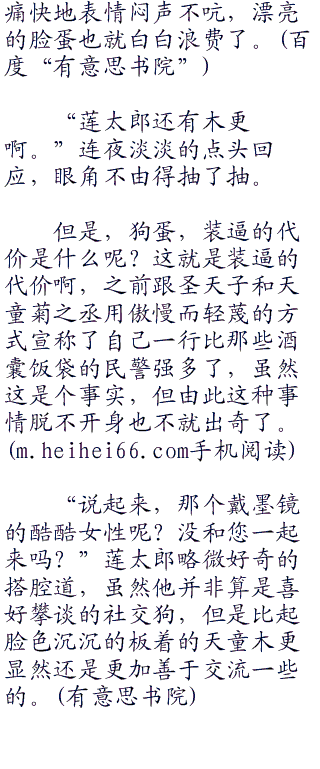 痛快地表情闷声不吭，漂亮
的脸蛋也就白白浪费了。(百
度“有意思书院”)
“莲太郎还有木更
啊。”连夜淡淡的点头回
应，眼角不由得抽了抽。
但是，狗蛋，装逼的代
价是什么呢？这就是装逼的
代价啊，之前跟圣天子和天
童菊之丞用傲慢而轻蔑的方
式宣称了自己一行比那些酒
囊饭袋的民警强多了，虽然
这是个事实，但由此这种事
情脱不开身也不就出奇了。
(m.heihei66.com手机阅读)
“说起来，那个戴墨镜
的酷酷女性呢？没和您一起
来吗？”莲太郎略微好奇的
搭腔道，虽然他并非算是喜
好攀谈的社交狗，但是比起
脸色沉沉的板着的天童木更
显然还是更加善于交流一些
的。(有意思书院)